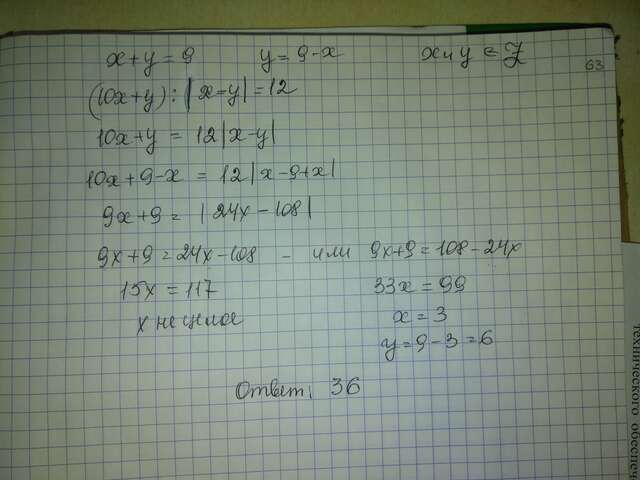 x+y=9 y=9-x x и y ∈ Z
63
(10x+y):|x-y|=12
10x+y = 12|x-y|
10x+9-x = 12|x-9+x|
9x+9 = |24x-108|
9x+9=24x-108 - или 9x+9=108-24x
15x=117 33x=99
x не целое x=3
y=9-3=6
Ответ: 36
технического обеспеч